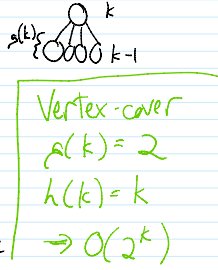 k
g(k)
k-1
Vertex-cover
g(k) = 2
h(k) = k
→ O(2^k)